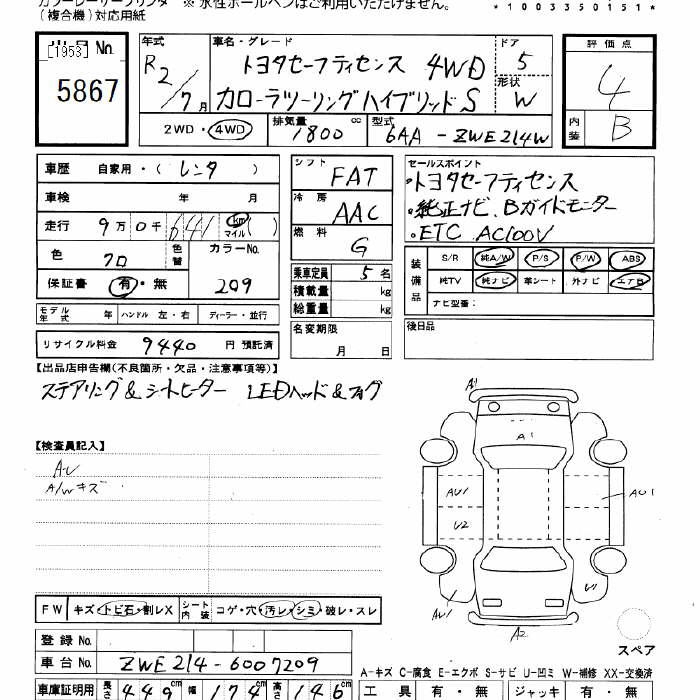 (複合機)対応用紙 ※ 水性ボールペンはご利用いただけません。
*1003350151*
[1953]
5867
年式 R2/7月
車名・グレード トヨタセーフティセンス 4WD
カローラツーリングハイブリッドS
ドア 5
形状 W
評価点 4
内装 B
2WD・4WD 排気量 1800 cc 型式 6AA-ZWE214W
車歴 自家用・(レンタ)
車検 年 月
走行 9万0千641 km マイル ( )
色 クロ 色替 カラーNo. 209
保証書 有・無
モデル年式 年 ハンドル 左・右 ディーラー・並行
リサイクル料金 9440 円 預託済
シフト FAT
冷房 AAC
燃料 G
乗車定員 5名
積載量 kg
総重量 kg
名変期限 月 日
セールスポイント
・トヨタセーフティセンス
・純正ナビ、Bガイドモニター
・ETC AC100V
装備品 S/R 純A/W P/S P/W ABS
純TV 純ナビ 革シート 外ナビ エアB
ナビ型番:
後日品
【出品店申告欄(不良箇所・欠品・注意事項等)】
ステアリング&シートヒーター LEDヘッド&フォグ
【検査員記入】
A・U
A/Wキズ
A1
A1
AU1
U2
AU1
AU1
U1
A2
スペア
FW キズ・トビ石・割レX シート内装 コゲ・穴・汚レ・シミ・破レ・スレ
登録No.
車台No. ZWE214-6007209
A-キズ C-腐食 E-エクボ S-サビ U-凹ミ W-補修 XX-交換済
車庫証明用 長さ 449cm 幅 174cm 高さ 146cm
工具 有・無 ジャッキ 有・無